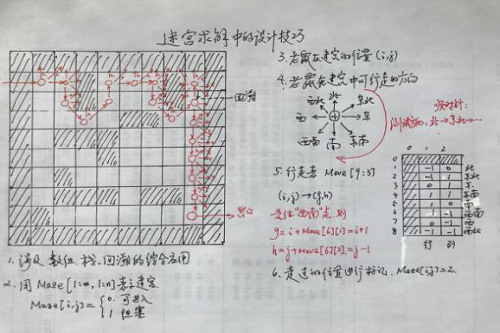 迷宫求解中的设计技巧
回溯
出口
1. 涉及数组、栈、回溯的综合应用
2. 用 Maze[1:m, 1:n]表示迷宫
Maze[i,j] = { 0. 可进入
1. 阻塞
3. 老鼠在迷宫的位置 (i,j)
4. 老鼠在迷宫中可行走的方向
西北 北 东北
西 东
西南 南 东南
顺时针:
北→东北→…
5. 行走表 Move[9:3]
(i,j)→(g,h)
若往"西南"走, 则
g = i + Move[6][1] = i+1
h = j + Move[6][2] = j-1
6. 走过的位置进行标记, Maze[i,j]=2.
0 1 2
0
1 -1 0 北
2 -1 1 东北
3 0 1 东
4 1 1 东南
5 1 0 南
6 1 -1 西南
7 0 -1 西
8 -1 -1 西北